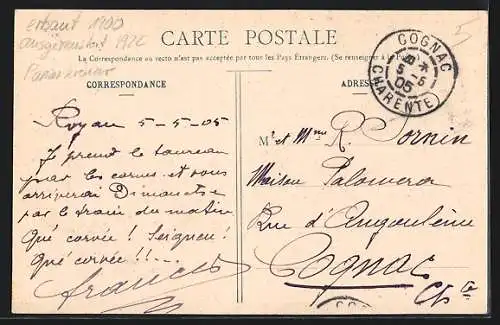 erbaut 1900
ausgemustert 1922
Panzerkreuzer
CARTE POSTALE
La Correspondance au recto n'est pas acceptée par tous les Pays Étrangers. (Se renseigner à la Po
CORRESPONDANCE
ADRES
COGNAC
5 - 5
05
CHARENTE
5
Royan 5-5-05
Je prend le taureau
par les cornes et vous
arriverai Dimanche
par le train du matin
Qué corvée! Seigneu!
Qué corvée!!...
francis
Mr et Mme R. Sornin
Maison Palomera
Rue d'Angoulême
Cognac
Chte